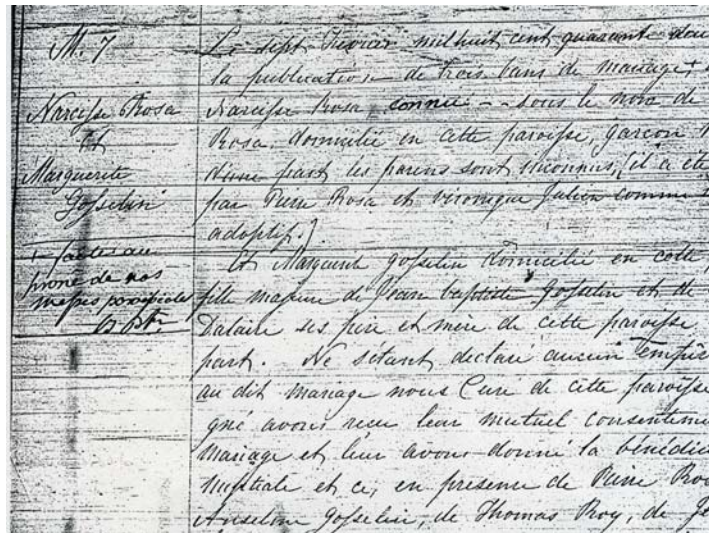 M. 7
Narcisse Rosa
et
Marguerite
Gosselin
+ faites au
prone de nos
messes paroissiales
Le sept Fevrier mil huit cent quarante dou
la publication de trois bans de mariage +
Narcisse Rosa connu -- sous le nom de
Rosa domicilié en cette paroisse, garçon
d'une part les parens sont inconnus, (il a ete
par Pierre Rosa et Veronique Julien comme
adoptif.)
Et Marguerite Gosselin domicilié en cette
fille majeure de Jean baptiste Gosselin et de
Dalaire ses pere et mère de cette paroisse
part. Ne sétant declaré aucun empê
au dit mariage nous Curé de cette paroisse
gné avons recu leur mutuel consenteme
mariage et leur avons donné la bénédic
nuptiale et ce, en presence de Pierre Ro
Anselme Gosselin, de Thomas Roy, de